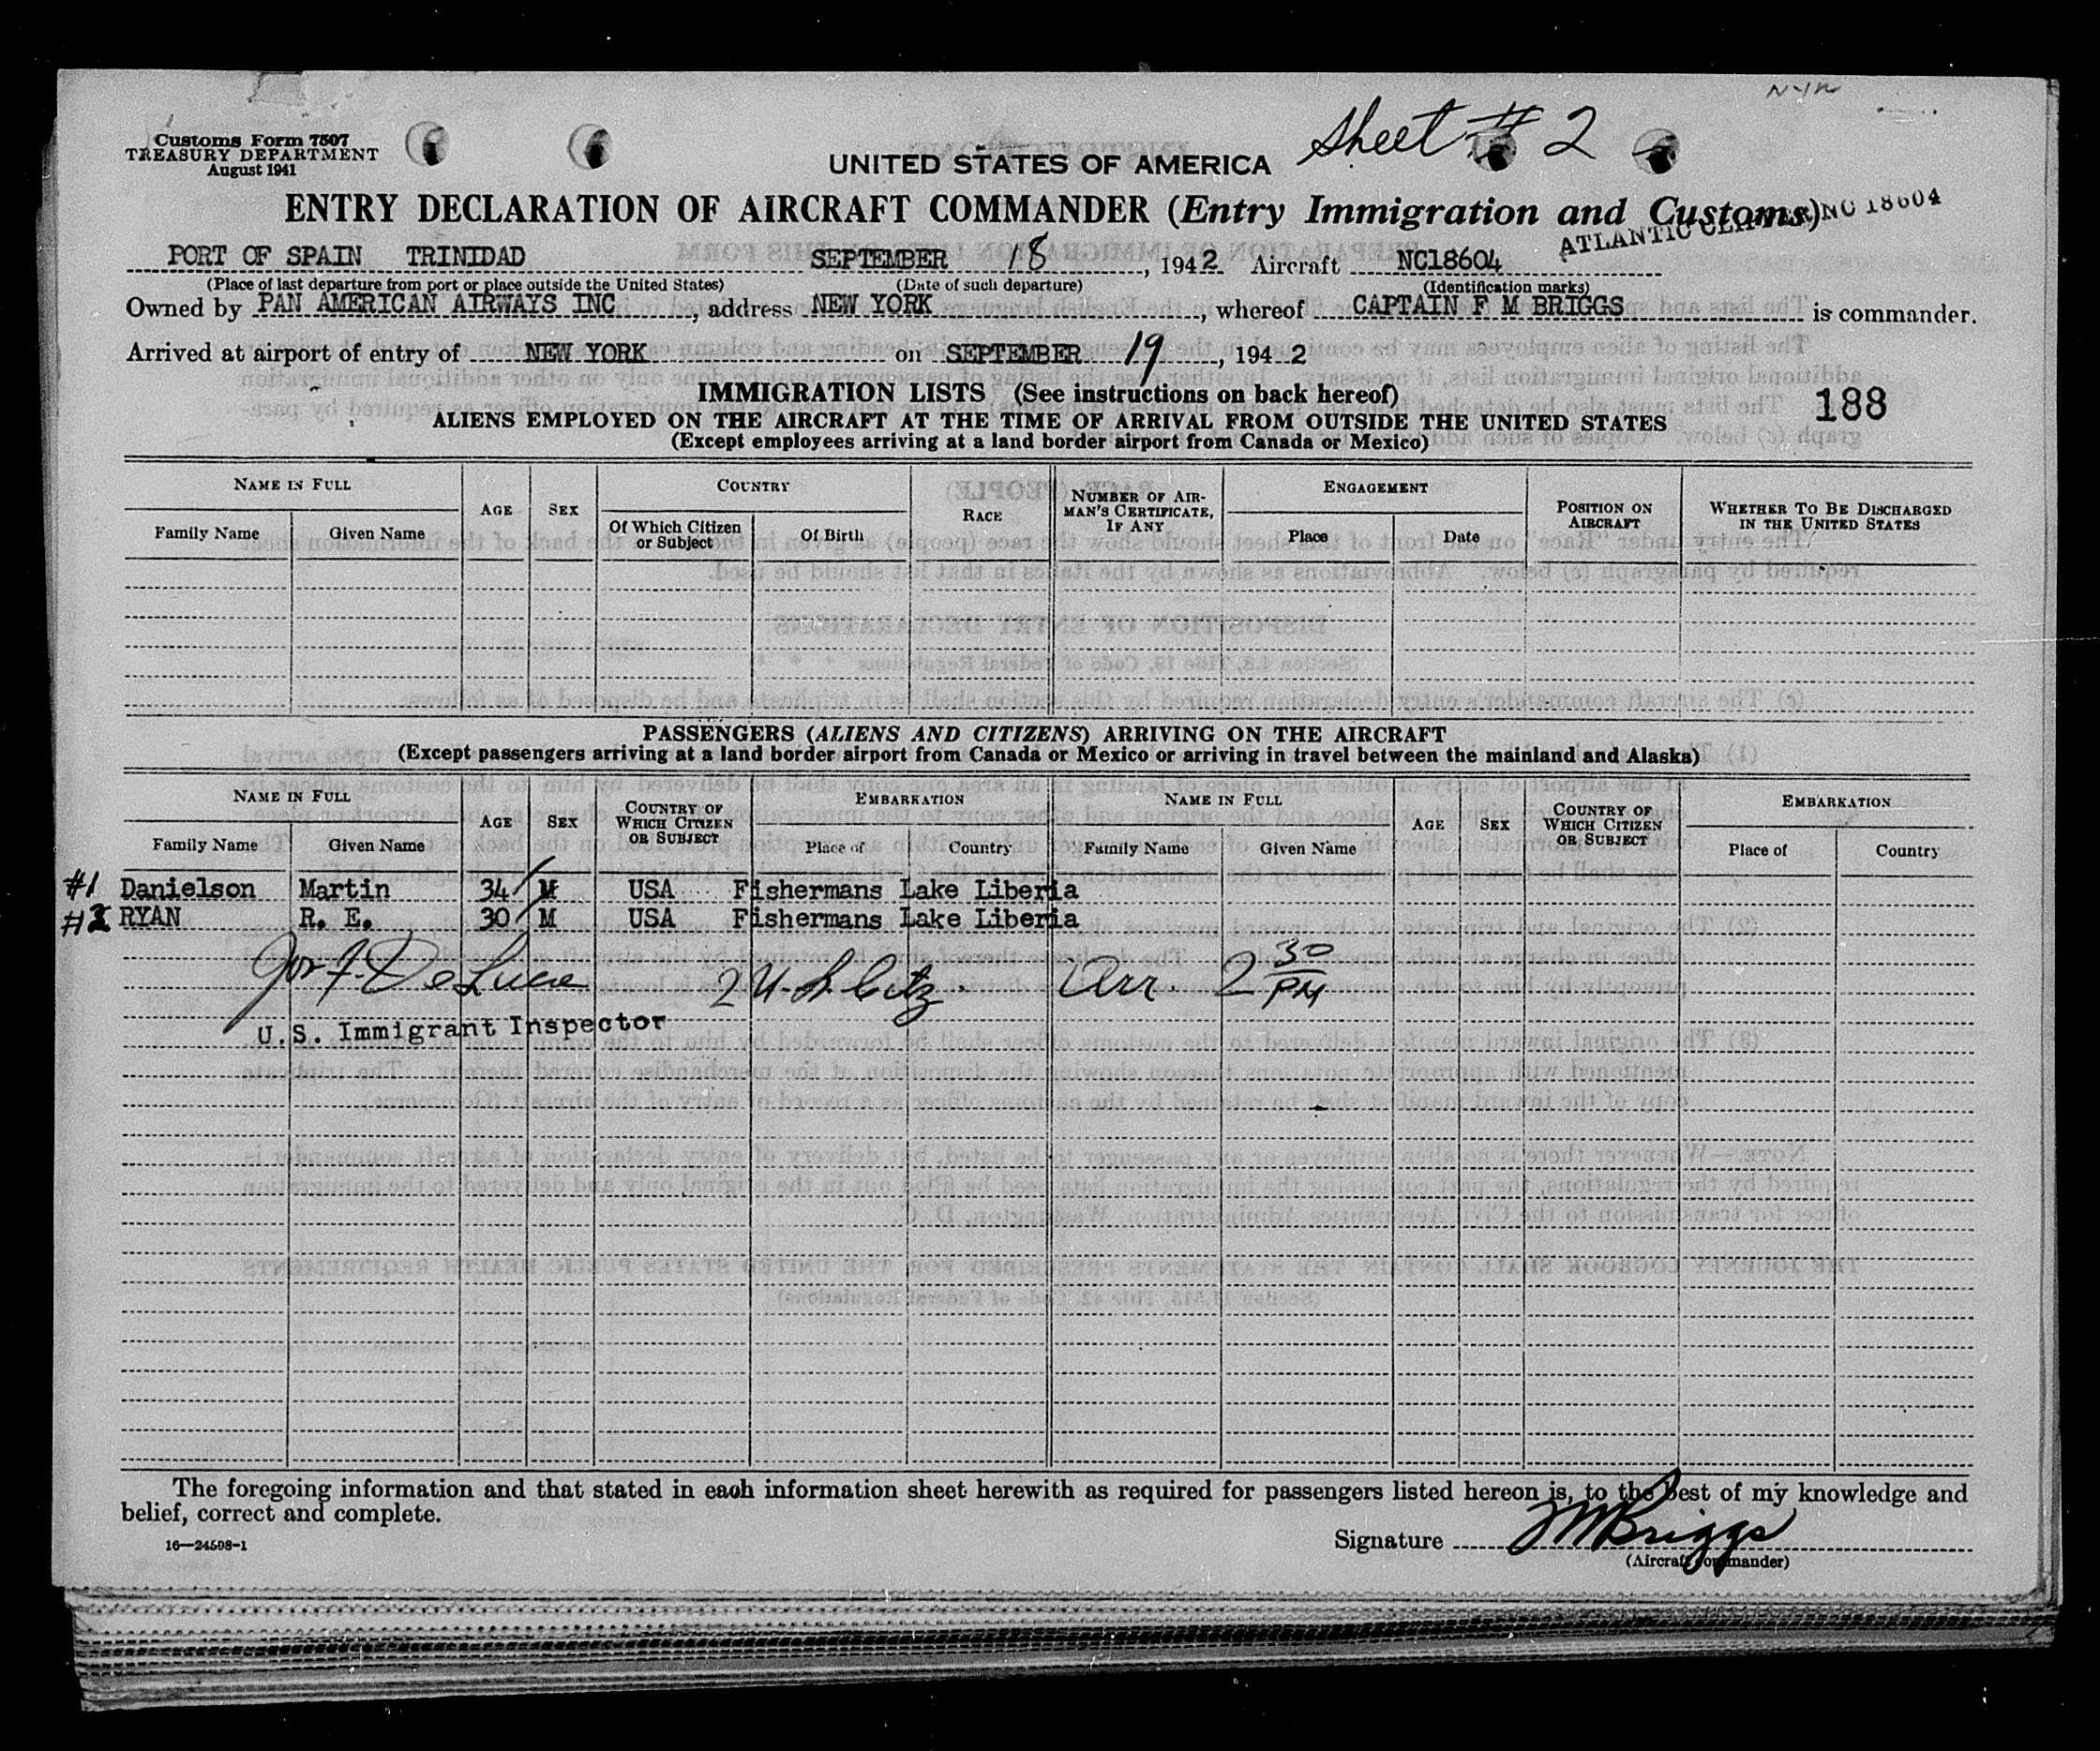 N-Y-R
Customs Form 7507
TREASURY DEPARTMENT
August 1941
Sheet # 2
UNITED STATES OF AMERICA
ENTRY DECLARATION OF AIRCRAFT COMMANDER (Entry Immigration and Customs)
ATLANTIC CLIPPER NC 18604
PORT OF SPAIN TRINIDAD SEPTEMBER 18, 1942 Aircraft NC18604
(Place of last departure from port or place outside the United States) (Date of such departure) (Identification marks)
Owned by PAN AMERICAN AIRWAYS INC, address NEW YORK, whereof CAPTAIN F M BRIGGS is commander.
Arrived at airport of entry of NEW YORK on SEPTEMBER 19, 1942
IMMIGRATION LISTS (See instructions on back hereof)
188
ALIENS EMPLOYED ON THE AIRCRAFT AT THE TIME OF ARRIVAL FROM OUTSIDE THE UNITED STATES
(Except employees arriving at a land border airport from Canada or Mexico)
NAME IN FULL AGE SEX COUNTRY RACE NUMBER OF AIRMAN'S CERTIFICATE, IF ANY ENGAGEMENT POSITION ON AIRCRAFT WHETHER TO BE DISCHARGED IN THE UNITED STATES
Family Name Given Name Of Which Citizen or Subject Of Birth Place Date
PASSENGERS (ALIENS AND CITIZENS) ARRIVING ON THE AIRCRAFT
(Except passengers arriving at a land border airport from Canada or Mexico or arriving in travel between the mainland and Alaska)
NAME IN FULL AGE SEX COUNTRY OF WHICH CITIZEN OR SUBJECT EMBARKATION NAME IN FULL AGE SEX COUNTRY OF WHICH CITIZEN OR SUBJECT EMBARKATION
Family Name Given Name Place of Country Family Name Given Name Place of Country
#1 Danielson Martin 34 M USA Fishermans Lake Liberia
#2 RYAN R. E. 30 M USA Fishermans Lake Liberia
Jos F. DeLuca 2 U.S. Citz. Arr. 2 30 PM
U.S. Immigrant Inspector
The foregoing information and that stated in each information sheet herewith as required for passengers listed hereon is, to the best of my knowledge and
belief, correct and complete.
Signature F M Briggs
16—24508-1
(Aircraft commander)